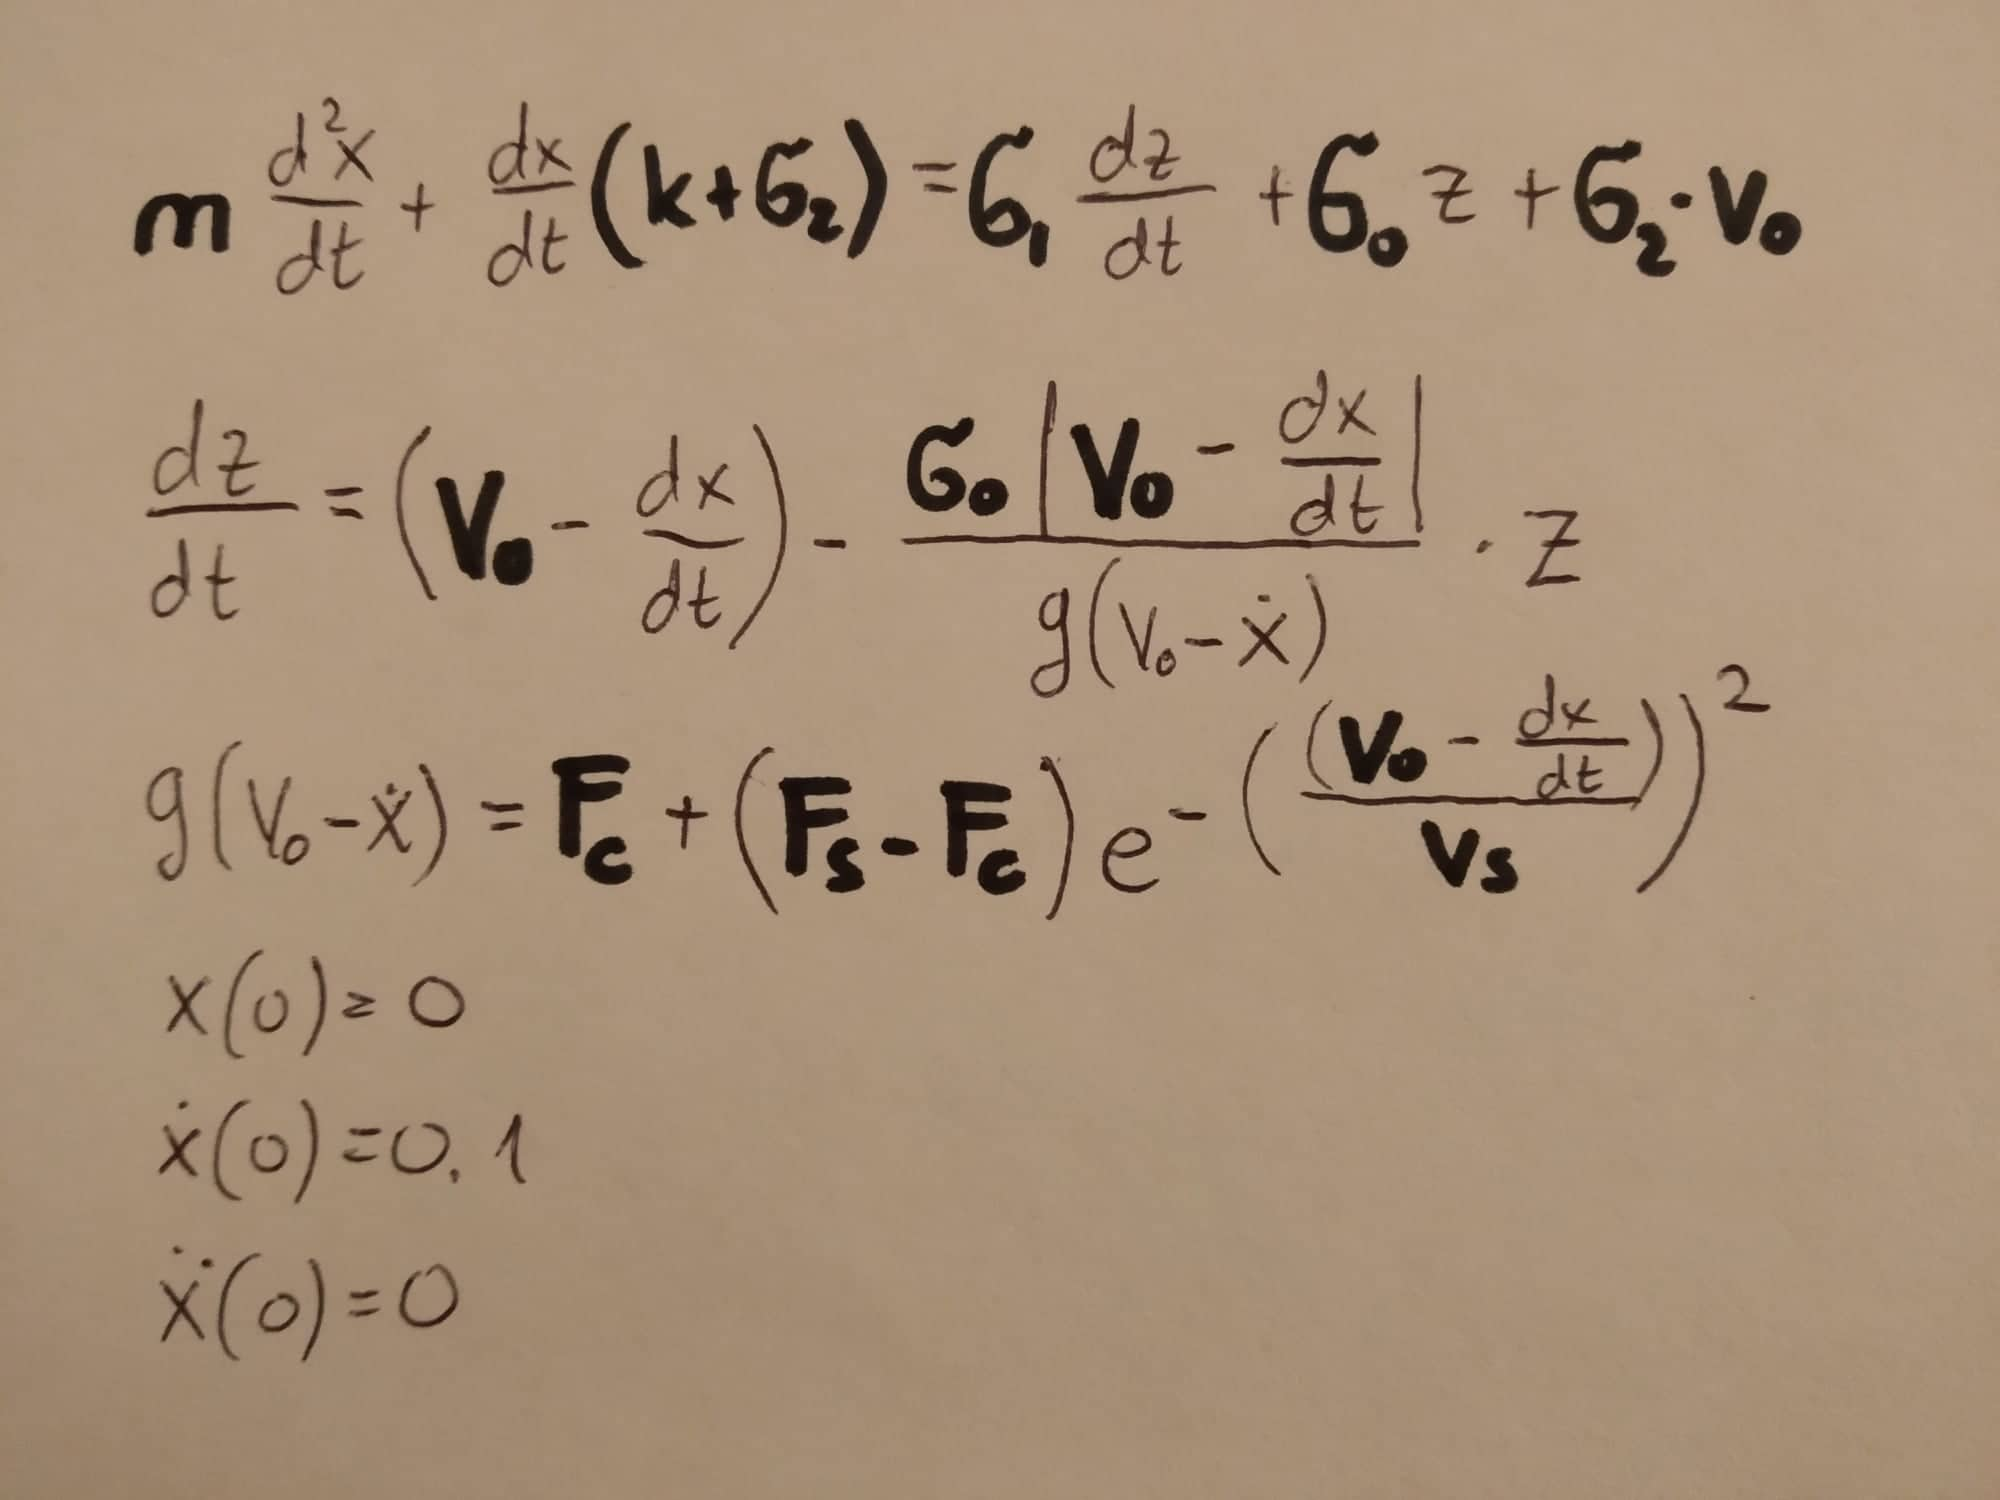 m d²x/dt + dx/dt (k+σ₂) = σ₁ dz/dt + σ₀ z + σ₂·v₀
dz/dt = (v₀ - dx/dt) - σ₀|v₀ - dx/dt| / g(v₀-ẋ) · z
g(v₀-ẋ) = F_c + (F_s - F_c) e^-((v₀ - dx/dt)/v_s)²
x(0)=0
ẋ(0)=0.1
ẍ(0)=0